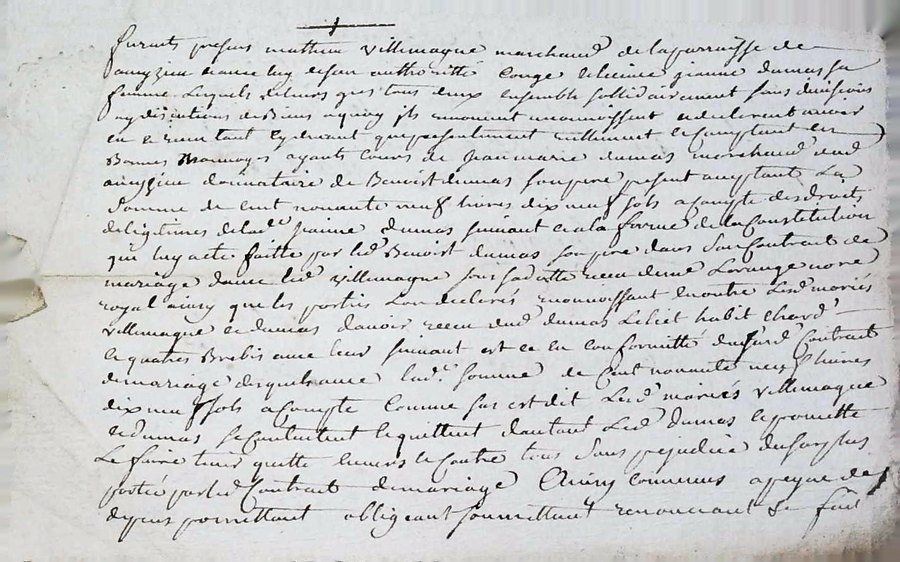 furent presens mathieu villemagne marchand de la parroisse de
avec luy de son authoritté Congé et licence jeanne dumas sa
femme Lesquels de leurs gres tous deux ensemble sollidairement sans divisions
ny discutions de Biens ont reconnoissent et declarent avoir
eu et receu tant cydevant que presentement réellement et Comptant en
Bonnes Monnoyes ayants Cours de Jean marie dumas marchand dud
donnataire de Benoist dumas son pere present acceptant La
Somme de Cent nonante neuf livres dix neuf sols a Compte des droits
de legitimes de lade jeanne dumas suivant et a la forme de la Constitution
qui luy a eté faitte par led Benoist dumas son pere dans Son Contrait de
mariage avec led villemagne sous sa datte receu de me Lorange nore
royal ainsy que les partis L'on declarés reconnoissant en outre Lesd mariés
villemagne et dumas d'avoir receu dud dumas Le Lict habit
et quatres Brebis avec leur suivant et ce en Conformitté dusurd Contrait
de mariage de quittance lade somme de Cent nonante neuf livres
dix neuf sols a Compte Comme sus est dit Lesd mariés villemagne
et dumas se Contentent et quittent d'autant Led dumas et promette
Le faire tenir quitte envers et Contre tous Sans prejudice du surplus
porté par led Contrait de mariage Ainsy Convenus a peyne de
depens promettant obligeant soumettant renonceant &c fait